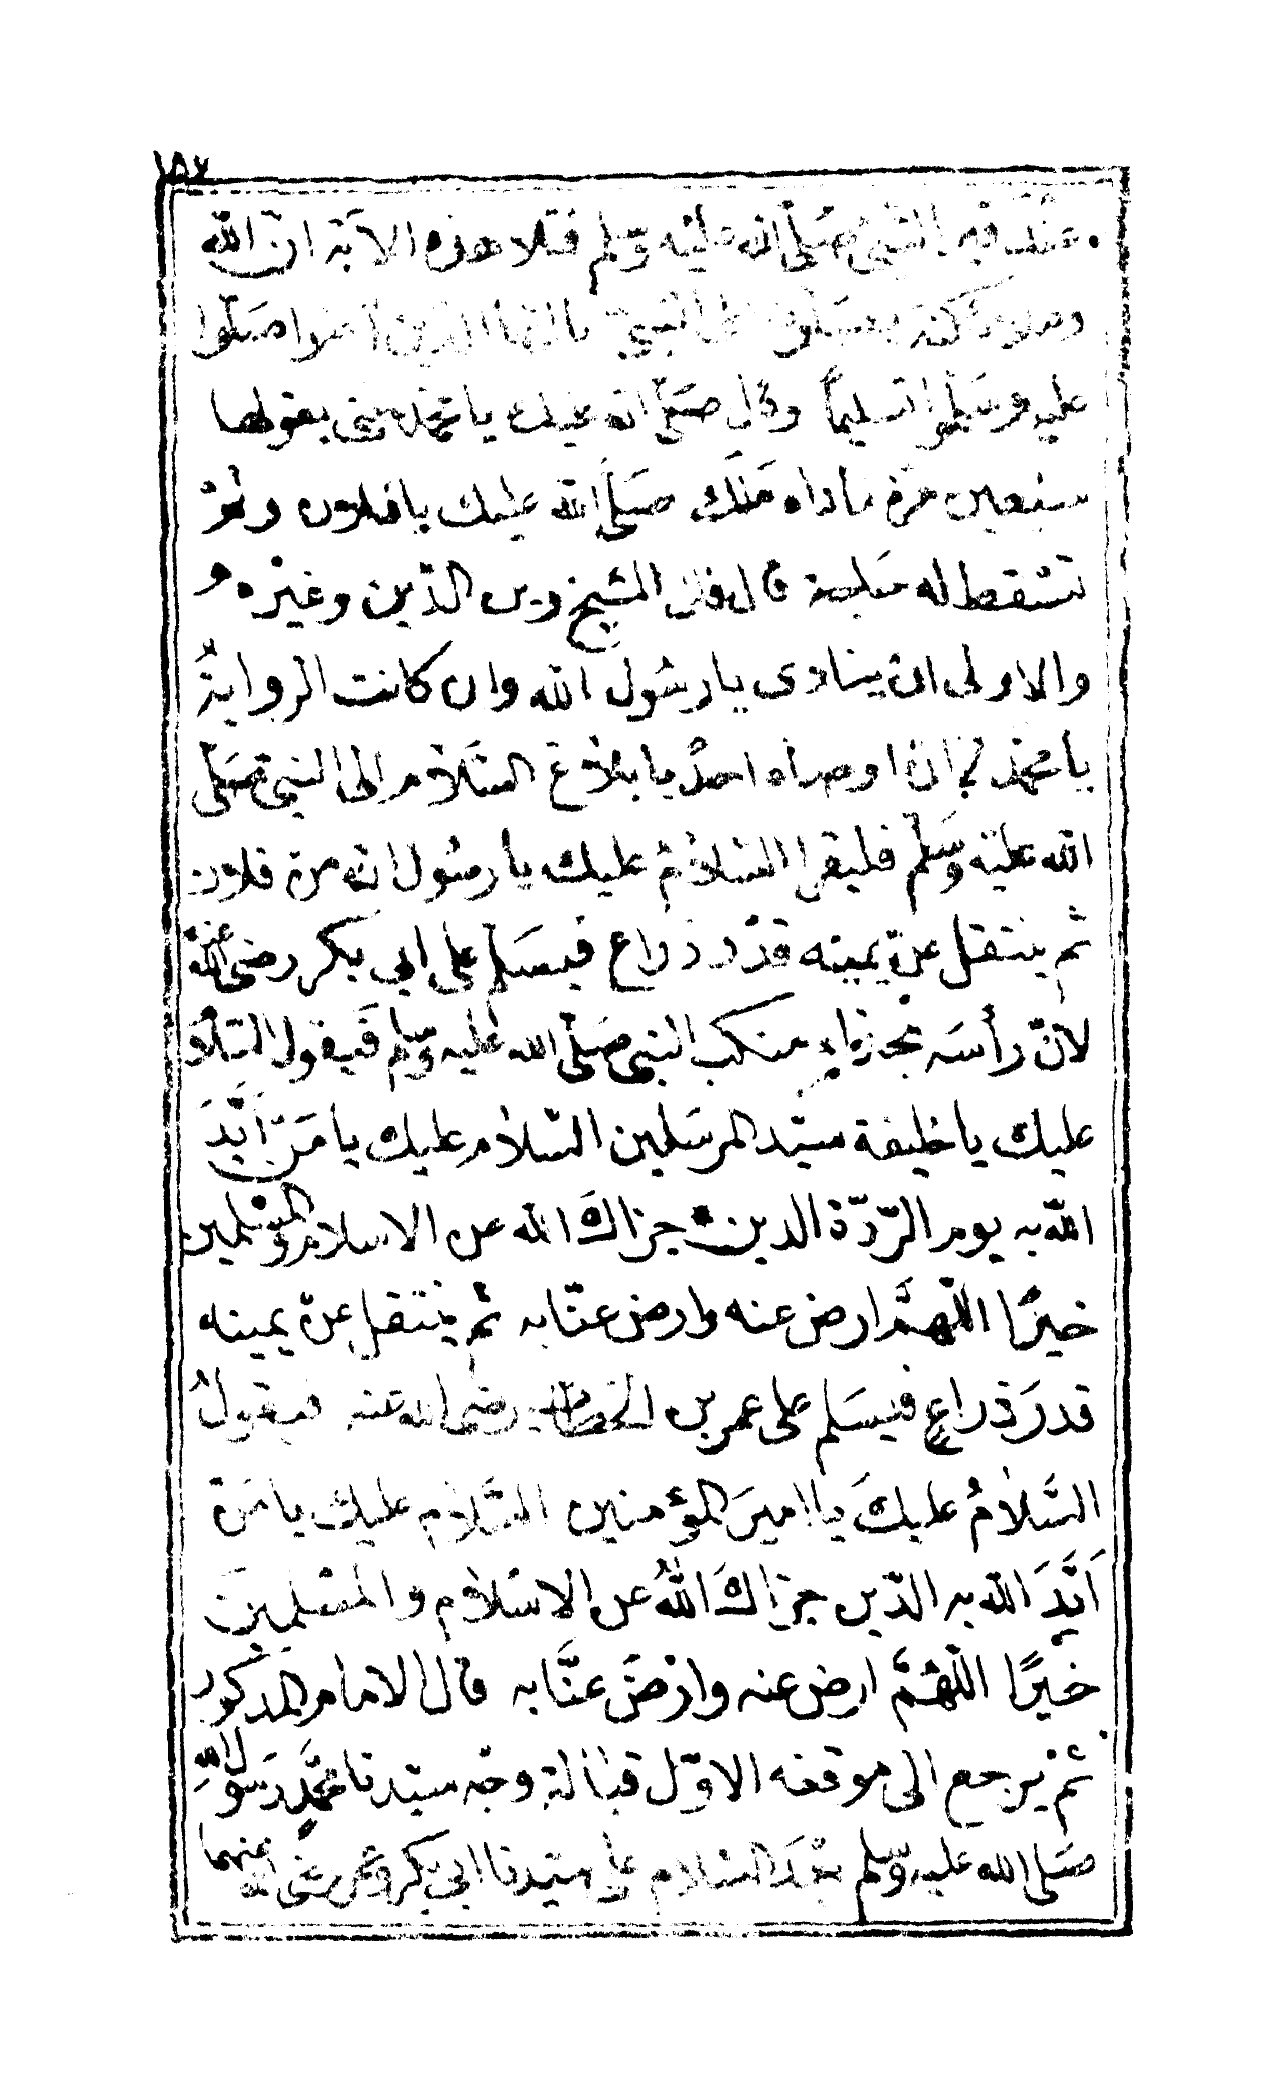 ١٨٧
عند قبر النبي صلى الله عليه وسلم فتلا هذه الآية ان الله
وملائكته يصلون على النبي يا ايها الذين آمنوا صلوا
عليه وسلموا تسليما وقال صلى الله عليك يا محمد حتى يقولها
سبعين مرة ناداه ملك صلى الله عليك يا فلان ولم
تسقط له حاجة قال الشيخ زين الدين وغيره
والاولى ان ينادى يا رسول الله وان كانت الرواية
يا محمد ثم ان اوصاه احد بابلاغ السلام الى النبي صلى
الله عليه وسلم فليقل السلام عليك يا رسول الله من فلان
ثم ينتقل عن يمينه قدر ذراع فيسلم على ابي بكر رضي الله عنه
لان رأسه بحذاء منكب النبي صلى الله عليه وسلم فيقول السلام
عليك يا خليفة سيد المرسلين السلام عليك يا من ايّد
الله به يوم الردّة الدين جزاك الله عن الاسلام والمسلمين
خيرًا اللهمّ ارض عنه وارض عنّا به ثم ينتقل عن يمينه
قدر ذراع فيسلم على عمر بن الخطاب رضي الله عنه فيقول
السّلامُ عليكَ يا اميرَ المؤمنين السّلام عليك يا من
اَيَّدَ الله به الدّين جزاكَ اللهُ عن الاسلام والمسلمين
خيرًا اللهمّ ارض عنه وارض عنّا به قال الامام المذكور
ثم يرجع الى موقفه الاوّل قبالة وجه سيّدنا محمّد رسول الله
صلى الله عليه وسلم بعد السلام على سيّدنا ابي بكر وعمر رضي الله عنهما